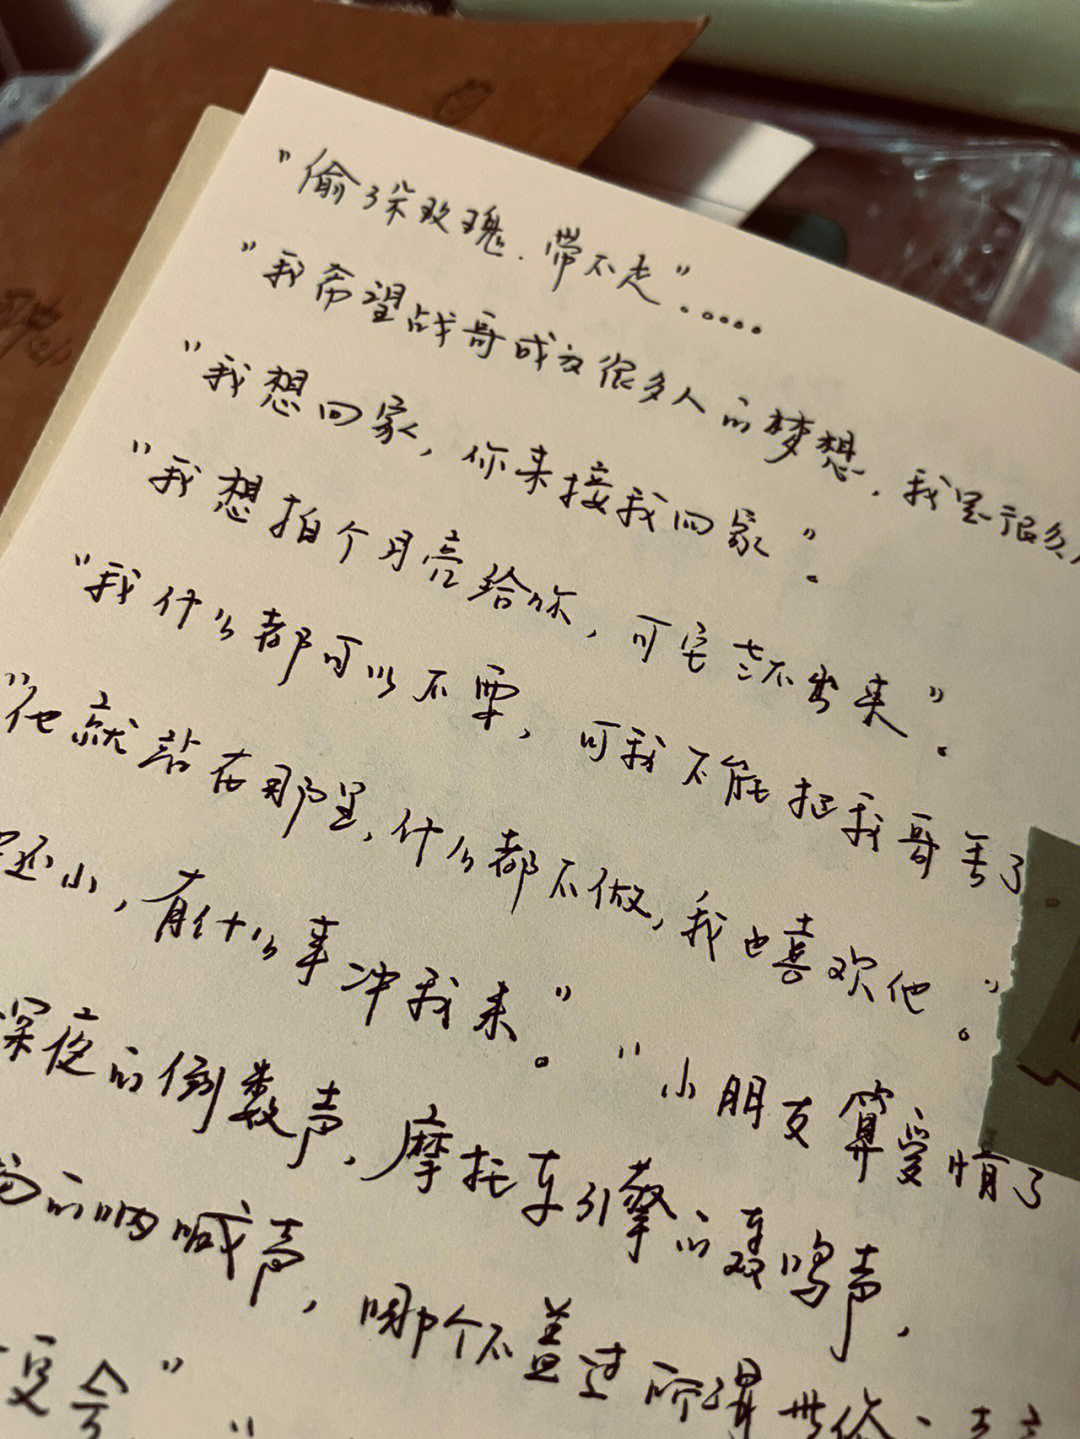 "偷了朵玫瑰.带不走"。。。。。
"我希望战哥成为很多人的梦想.我是很多
"我想回家,你来接我回家"。
"我想拍个月亮给你,可它拍不出来"。
"我什么都可以不要,可我不能把我哥丢了
"他就站在那里,什么都不做,我也喜欢他。"
还小,有什么事冲我来。""小朋友算爱情了
深夜的倒数声、摩托车引擎的轰鸣声,
的呐喊声,哪个不盖过所谓世俗、
"
"